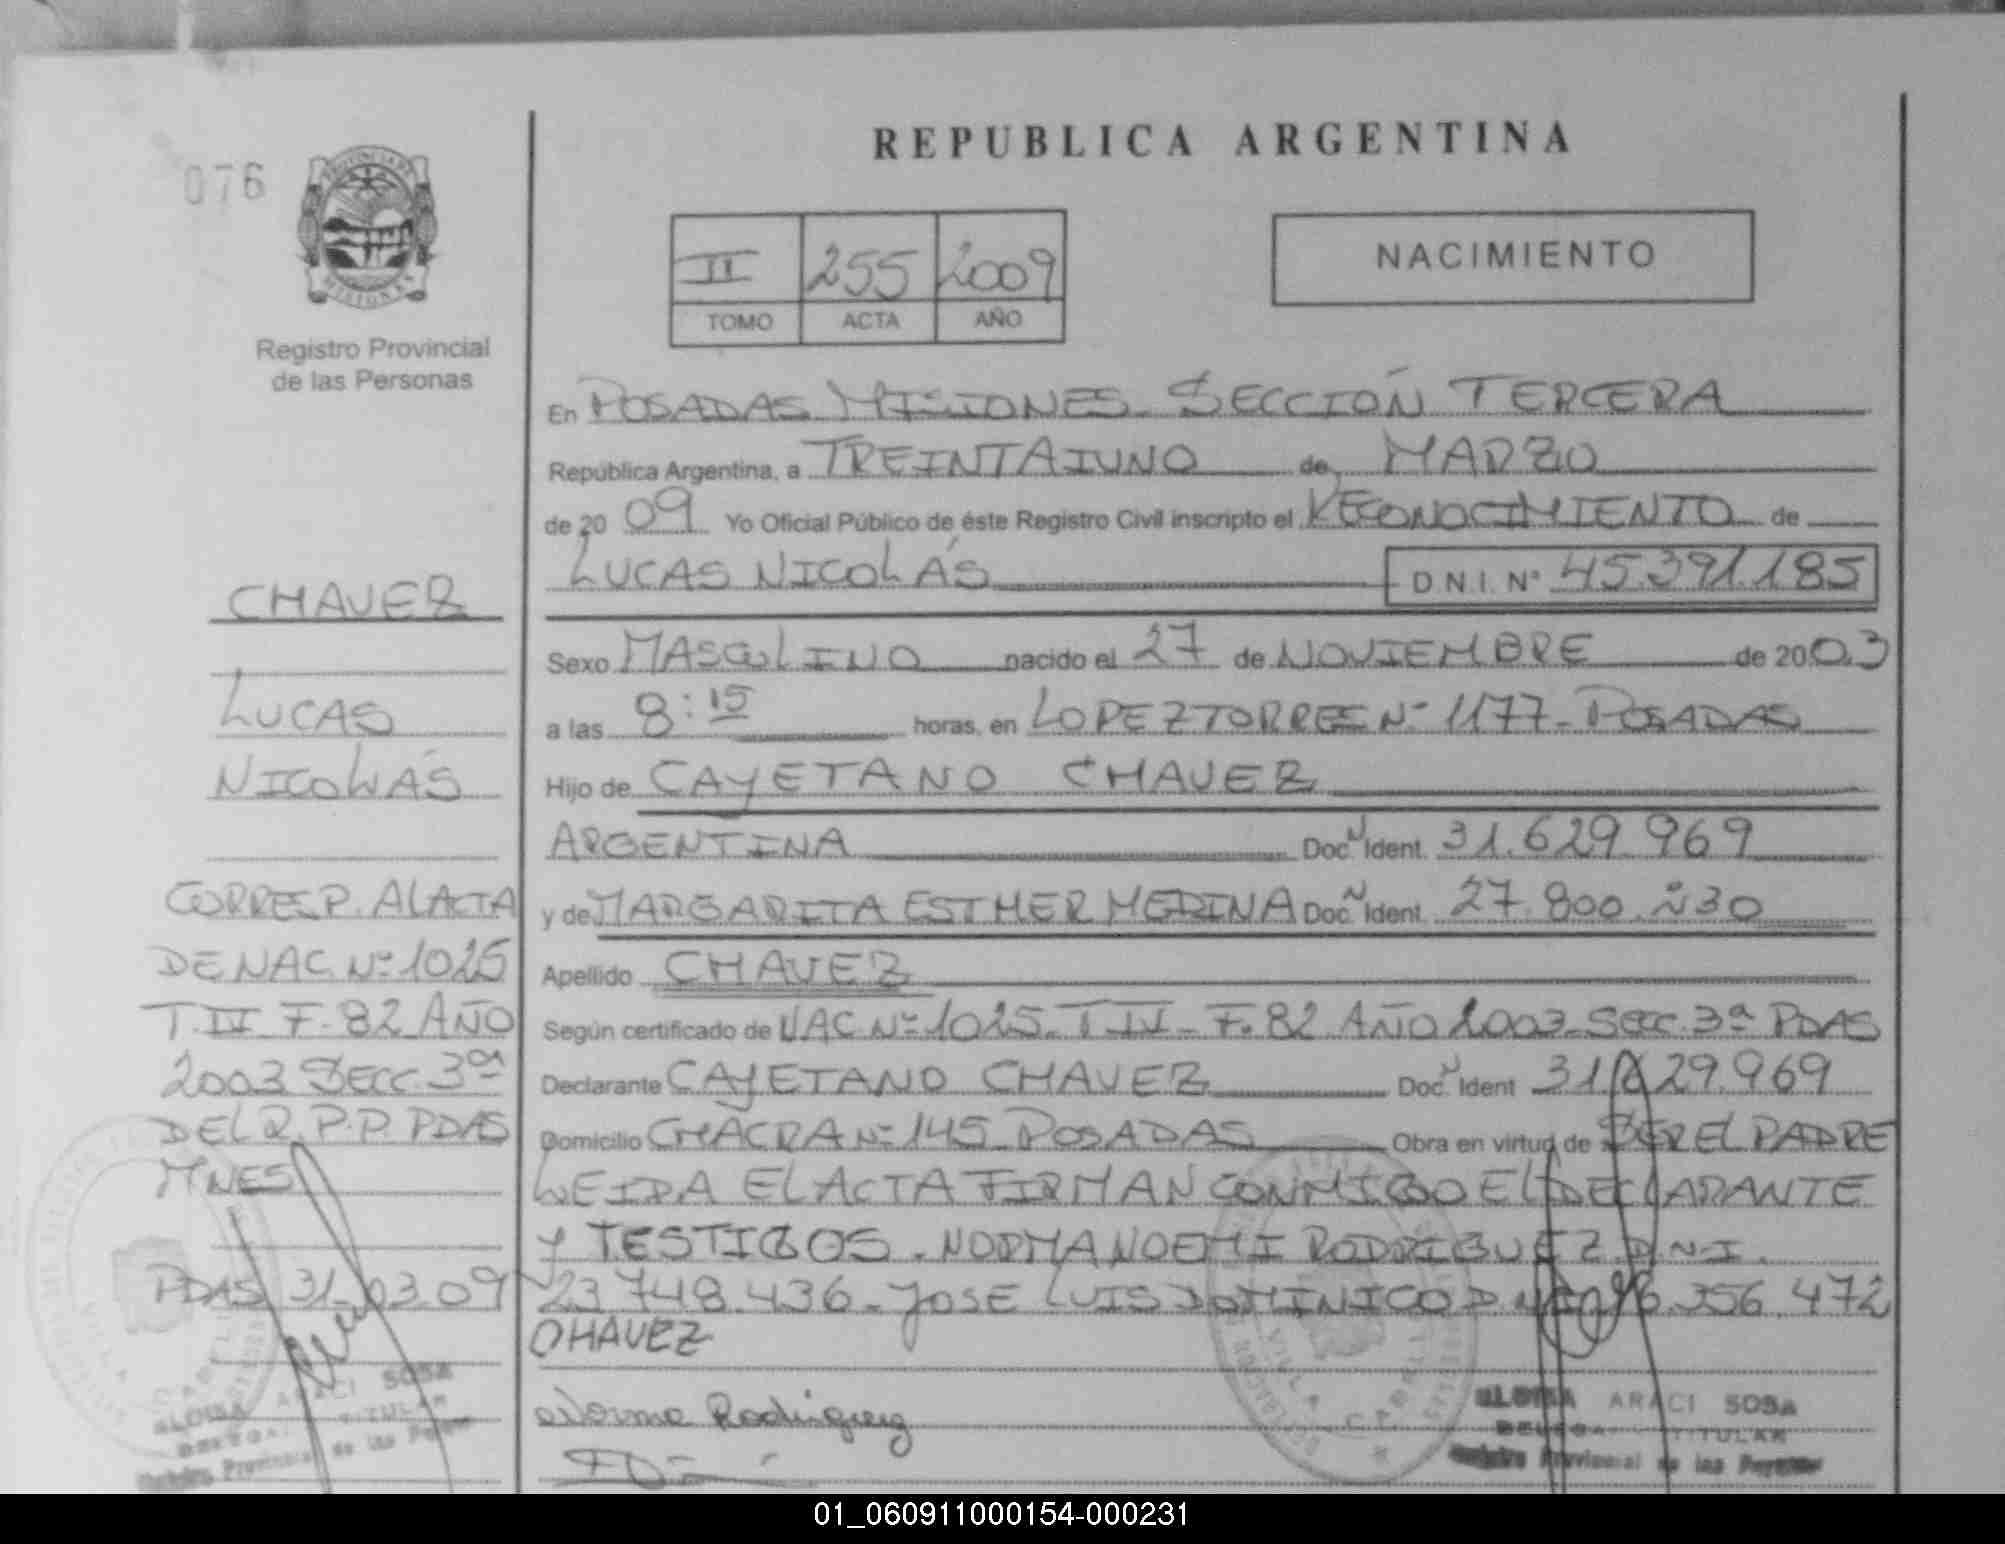 076
REPUBLICA ARGENTINA
PROVINCIA DE
MISIONES
II 255 2009
TOMO ACTA AÑO
NACIMIENTO
Registro Provincial
de las Personas
En POSADAS MISIONES SECCIÓN TERCERA
República Argentina, a TREINTAIUNO de MARZO
de 20 09 Yo Oficial Público de éste Registro Civil inscripto el RECONOCIMIENTO de
LUCAS NICOLÁS D.N.I. Nº 45.391.185
Sexo MASCULINO nacido el 27 de NOVIEMBRE de 20 03
a las 8:15 horas, en LOPEZ TORRES Nº 1177- POSADAS
Hijo de CAYETANO CHAVEZ
ARGENTINA Doc. Ident. 31.629.969
y de MARGARITA ESTHER MEDINA Doc. Ident. 27.800.230
Apellido CHAVEZ
Según certificado de NAC. Nº 1025- T IV- F. 82 AÑO 2003- SECC. 3ª PDAS
Declarante CAYETANO CHAVEZ Doc. Ident 31.629.969
Domicilio CHACRA Nº 145- POSADAS Obra en virtud de SER EL PADRE
LEIDA EL ACTA FIRMAN CONMIGO EL DECLARANTE
Y TESTIGOS. NORMA NOEMI RODRIGUEZ D.N.I.
23.748.436- JOSE LUIS DOMINICO 356.472
CHAVEZ
Norma Rodriguez
ELOISA ARACI SOSA
TITULAR
Provincial de las Personas
CHAVEZ
LUCAS
NICOLÁS
CORRESP. AL ACTA
DE NAC. Nº 1025
T. IV F. 82 AÑO
2003 SECC. 3ª
DEL R.P.P. PDAS
MNES
PDAS 31.03.09
ELOISA ARACI SOSA
TITULAR
Provincial de las Personas
01_060911000154-000231